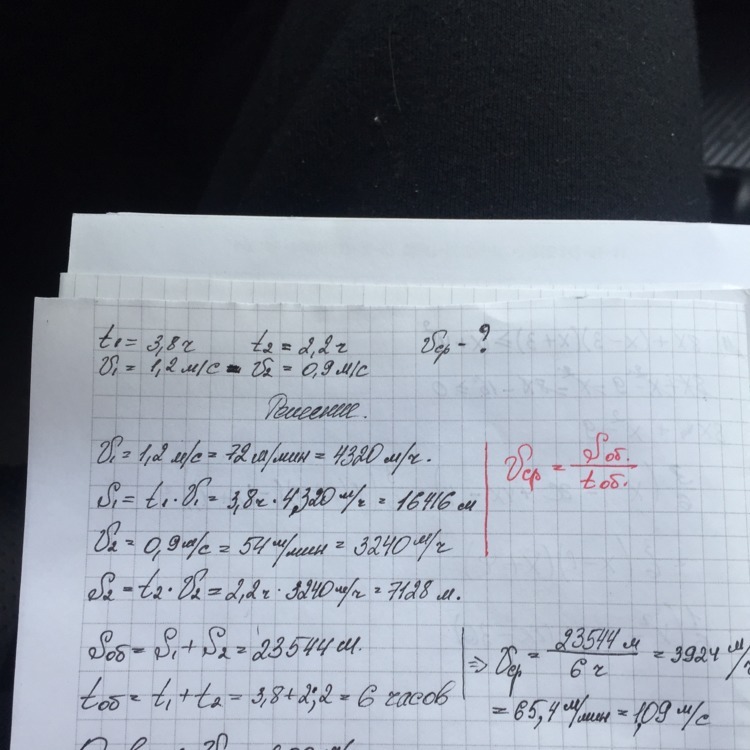 t₁ = 3,8 ч t₂ = 2,2 ч υср - ?
υ₁ = 1,2 м/с υ₂ = 0,9 м/с
Решение.
υ₁ = 1,2 м/с = 72 м/мин = 4320 м/ч.
S₁ = t₁ · υ₁ = 3,8ч · 4320 м/ч = 16416 м
υ₂ = 0,9 м/с = 54 м/мин = 3240 м/ч
S₂ = t₂ · υ₂ = 2,2 ч · 3240 м/ч = 7128 м.
υср = Sоб. / tоб.
Sоб = S₁ + S₂ = 23544 м.
tоб = t₁ + t₂ = 3,8 + 2,2 = 6 часов
⇒ υср = 23544 м / 6 ч = 3924 м/ч
= 65,4 м/мин = 1,09 м/с